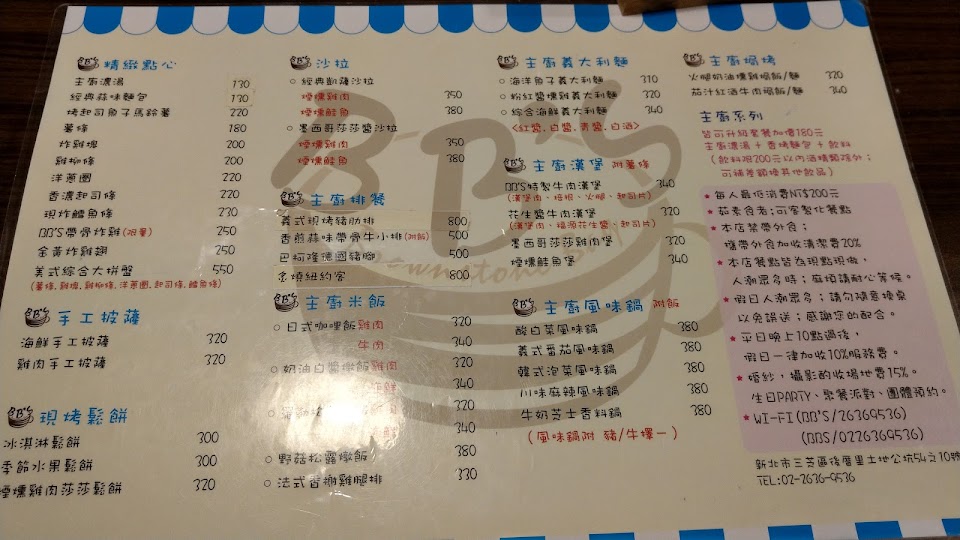 精緻點心
主廚濃湯 130
經典蒜味麵包 130
烤起司魚子馬鈴薯 220
薯條 180
炸雞塊 200
雞柳條 200
洋蔥圈 220
香濃起司條 220
現炸鱈魚條 230
BB'S帶骨炸雞(限量) 250
金黃炸雞翅 250
美式綜合大拼盤 550
(薯條.雞塊.雞柳條.洋蔥圈.起司條.鱈魚條)
手工披薩
海鮮手工披薩 320
雞肉手工披薩 320
現烤鬆餅
冰淇淋鬆餅 300
季節水果鬆餅 300
煙燻雞肉莎莎鬆餅 320
沙拉
經典凱薩沙拉
煙燻雞肉 350
煙燻鮭魚 380
墨西哥莎莎醬沙拉
煙燻雞肉 350
煙燻鮭魚 380
主廚排餐
義式現烤豬肋排 800
香煎蒜味帶骨牛小排(附飯) 500
巴柯隆德國豬腳 500
炙燒紐約客 800
主廚米飯
日式咖哩飯 雞肉 320
牛肉 340
奶油白醬燉飯 雞肉 320
海鮮 340
320
海鮮 340
野菇松露燉飯 380
法式香榭雞腿排 330
主廚義大利麵
海洋魚子義大利麵 310
粉紅醬燻雞義大利麵 320
綜合海鮮義大利麵 340
<紅醬.白醬.青醬.白酒>
主廚漢堡 附薯條
BB'S特製牛肉漢堡 340
(漢堡肉、培根、火腿、起司片)
花生醬牛肉漢堡 320
(漢堡肉、福源花生醬、起司片)
墨西哥莎莎雞肉堡 320
煙燻鮭魚堡 340
主廚風味鍋 附飯
酸白菜風味鍋 380
義式番茄風味鍋 380
韓式泡菜風味鍋 380
川味麻辣風味鍋 380
牛奶芝士香料鍋 380
(風味鍋附 豬/牛擇一)
主廚焗烤
火腿奶油燻雞焗飯/麵 320
茄汁紅酒牛肉焗飯/麵 340
主廚系列
皆可升級套餐加價180元
主廚濃湯 + 香烤麵包 + 飲料
(飲料限200元以內酒精類除外;
可補差額換其他飲品)
★每人最低消費NT$200元
★茹素食者;可客製化餐點
★本店禁帶外食;
攜帶外食加收清潔費20%
★本店餐點皆為現點現做,
人潮眾多時;麻煩請耐心等候。
★假日人潮眾多;請勿隨意換桌
以免誤送;感謝您的配合。
★平日晚上10點過後,
假日一律加收10%服務費。
★婚紗,攝影酌收場地費15%。
生日PARTY、聚餐派對、團體預約。
★WI-FI(BB'S/26369536)
(BBS/0226369536)
新北市三芝區後厝里土地公坑54之10號
TEL:02-2636-9536